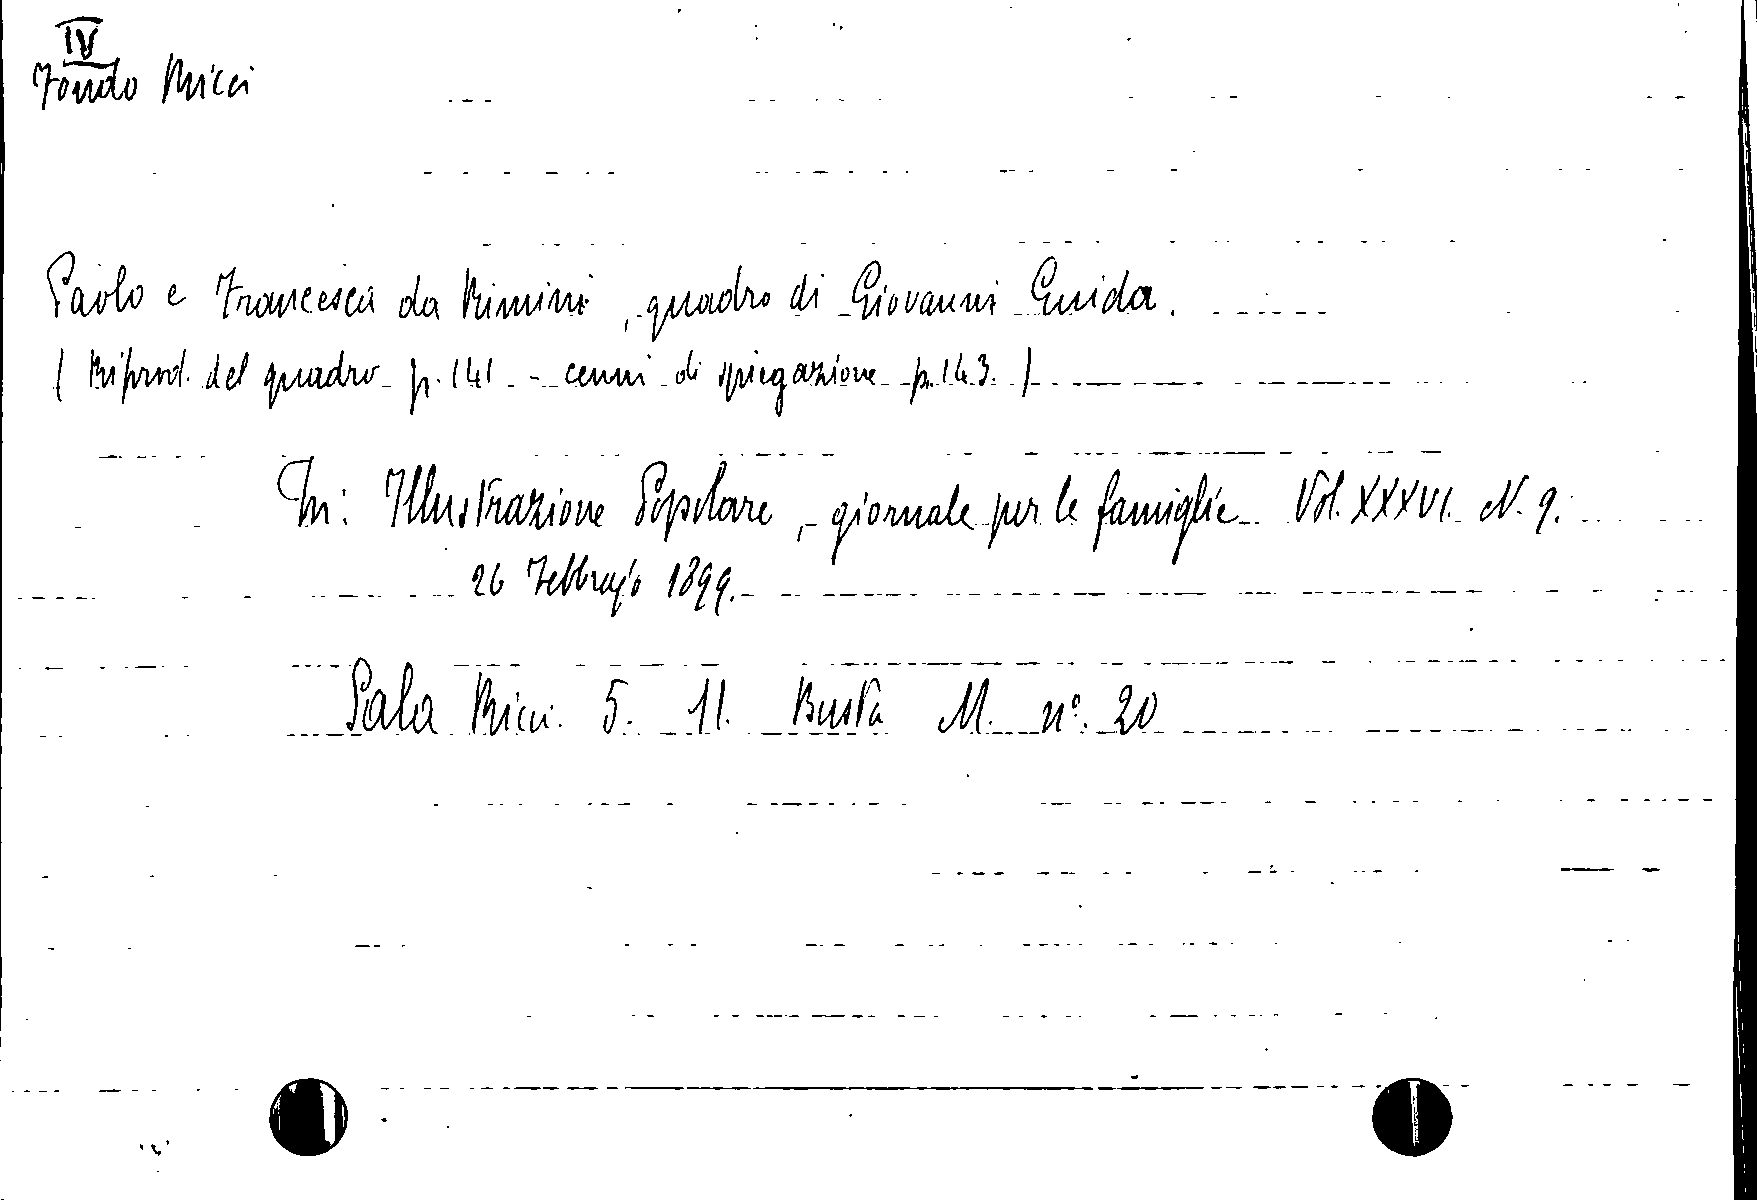 IV
Fondo Ricci
Paolo e Francesca da Rimini, quadro di Giovanni Guida.
( Riprod. del quadro p. 141 - cenni di spiegazione p. 143. )
In: Illustrazione Popolare, giornale per le famiglie Vol. XXXVI. N. 9.
26 Febbrajo 1899.
Sala Ricci. 5. 11. Busta M. nº. 20